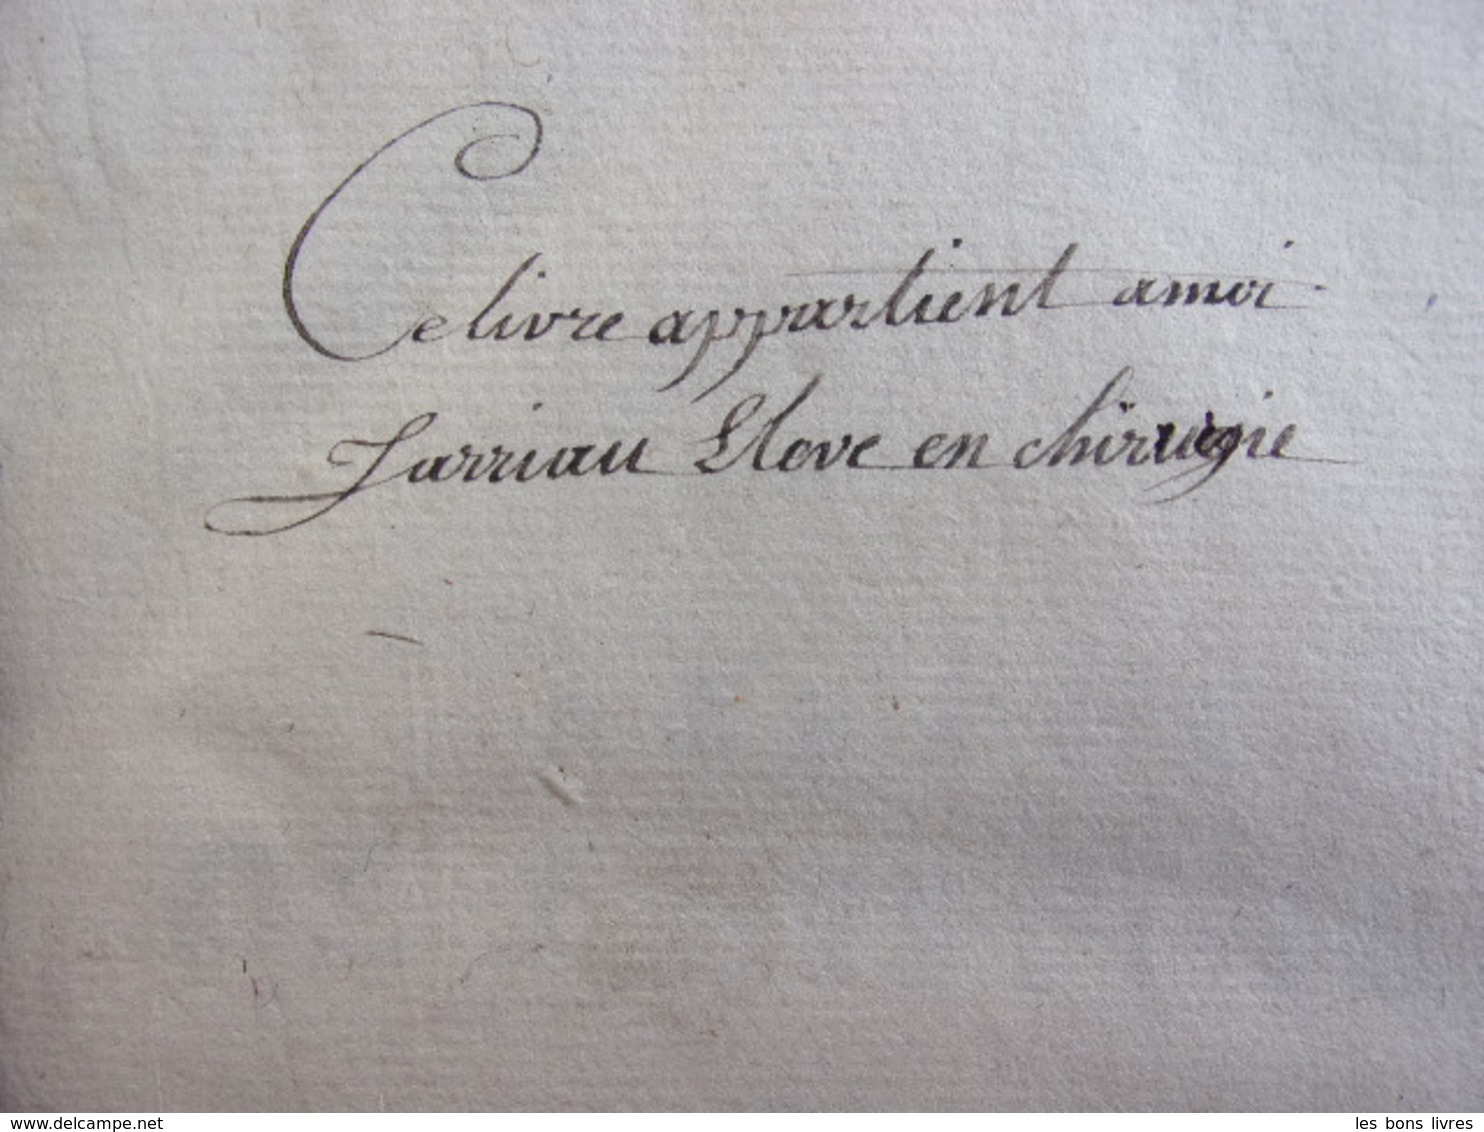 Ce livre appartient a moi
Jarriau Eleve en chirurgie
www.delcampe.net
les bons livres